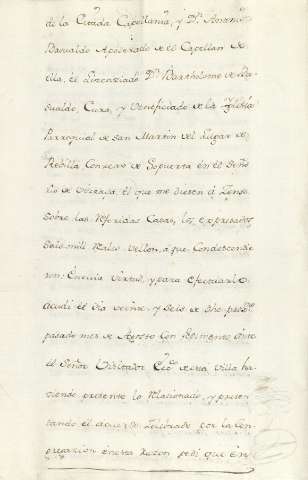 de la Citada Capellania, y Dn. Antonio
Basualdo Apoderado de el Capellan de
ella, el Lizenziado Dn. Bartholome de Ba
sualdo, Cura, y Beneficiado de la Iglesia
Parroquial de San Martin del Lugar de
Rebilla Conzexo de Sopuerta en el Seño
rio de Vizcaya. El que me diesen á Zenso
sobre las referidas Casas, los expresados
seis mill rreales vellon, á que Condescendie
ron: En cuia virtud, y para efectuarlo
acudi el dia veinte y seis de dho
pasado mes de Agosto con Pedimento ante
el Señor Visitador Ecco. de esta Villa ha
ziendo presente lo relacionado, y presen
tando el acuerdo por la Con
gregazion en esta razon pedi que en